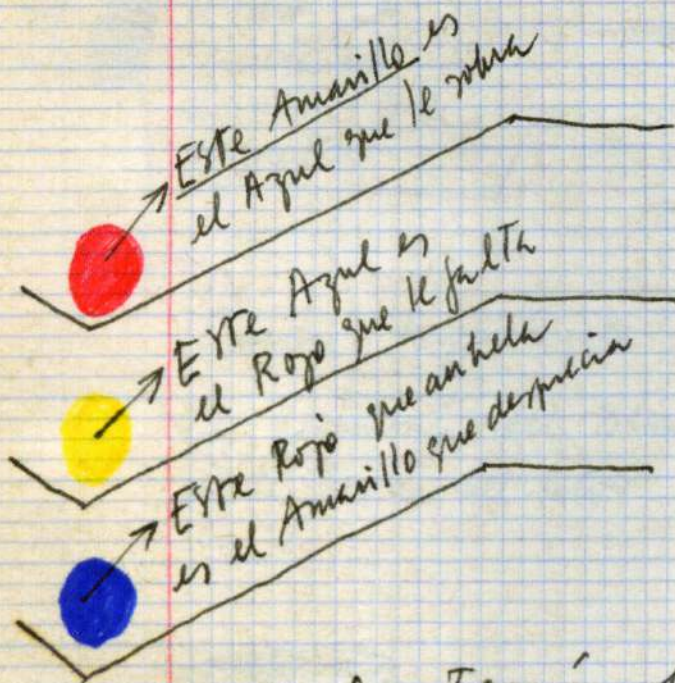 Este Amarillo es
el Azul que le sobra
Este Azul es
el Rojo que le falta
Este Rojo que anhela
es el Amarillo que desprecia